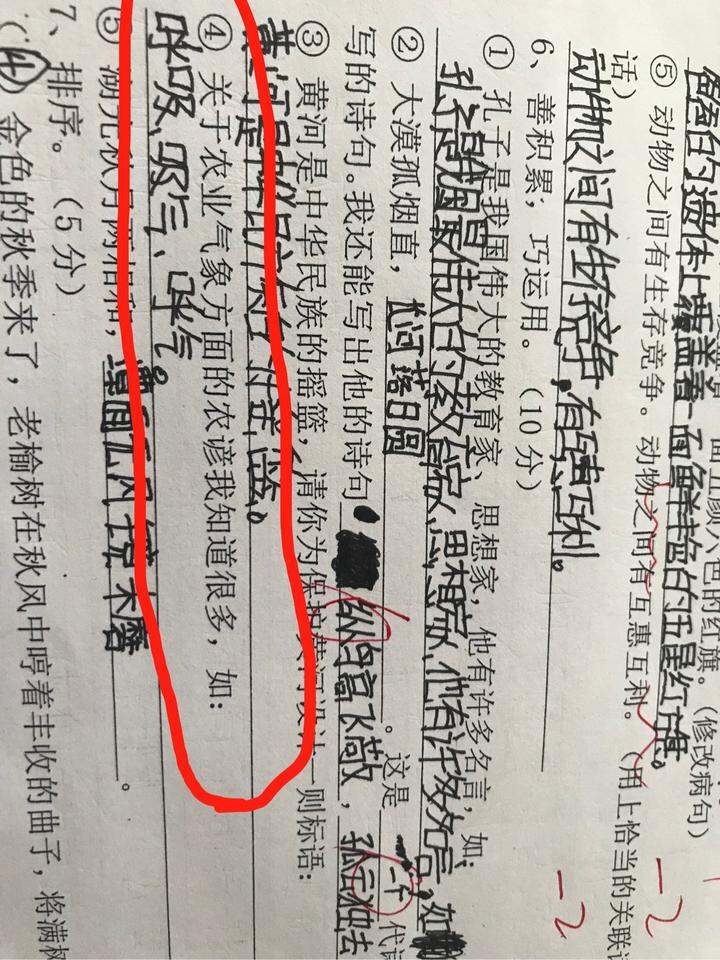 面五颜六色的红旗。(修改病句)
的遗体上覆盖着一面鲜艳的五星红旗。
⑤ 动物之间有生存竞争。动物之间有互惠互利。(用上恰当的关联
话)
动物之间有生存竞争,有互惠互利。
6、善积累,巧运用。(10分)
① 孔子是我国伟大的教育家、思想家,他有许多名言,如:
孔子是我国最伟大的教育家、思想家,他有许多名言,如
② 大漠孤烟直,长河落日圆。这是一个代
写的诗句。我还能写出他的诗句
③ 黄河是中华民族的摇篮,请你为保护黄河设计一则标语:
黄河是中华民族的摇篮。
④ 关于农业气象方面的农谚我知道很多,如:
呼吸、吸气、呼气。
⑤ 湖光秋月两相和,潭面无风镜未磨。
7、排序。(5分)
(4)金色的秋季来了,老榆树在秋风中哼着丰收的曲子,将满树
-2
-2